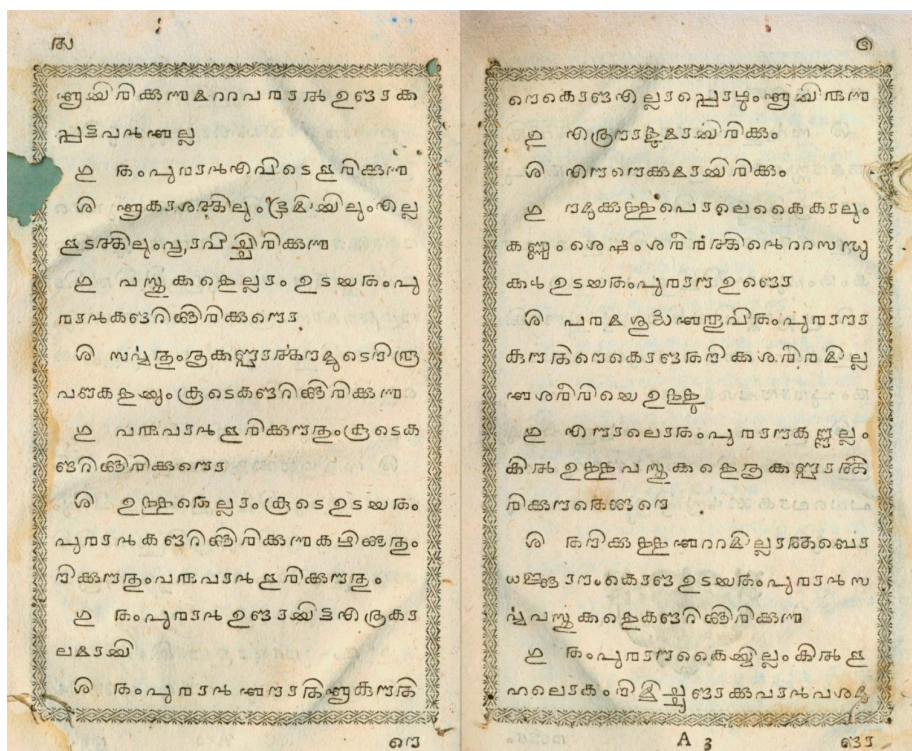 ൬
ആയിരിക്കുന്നമററവരാൽ ഉണ്ടാക്ക
പ്പട്ടവൻഅല്ല
ഗു തംപുരാൻഎവിടെഇരിക്കുന്നു
ശി ആകാശത്തിലുംഭൂമിയിലുംഎല്ലാ
ഇടത്തിലുംവ്യാപിച്ചിരിക്കുന്നു
ഗു വസ്തുക്കളെല്ലാം ഉടയതംപു
രാൻകണ്ടറിഞ്ഞിരിക്കുന്നൊ
ശി സർവ്വതുംതൃക്കണ്പാർത്തനമുടെനിരൂ
വണകളെയുംകൂടെകണ്ടറിഞ്ഞിരിക്കുന്നു
ഗു വരുവാൻഇരിക്കുന്നതുംകൂടെക
ണ്ടറിഞ്ഞിരിക്കുന്നൊ
ശി ഉള്ളതെല്ലാം കൂടെ ഉടയതം
പുരാൻകണ്ടറിഞ്ഞിരിക്കുന്നകഴിഞ്ഞതും
നിക്കുന്നതുംവരുവാൻഇരിക്കുന്നതും
ഗു തംപുരാൻ ഉണ്ടായിട്ടഎത്രകാ
ലമായി
ശി തംപുരാൻഅനാദിആകുന്നതി
നെ
൭
നെകൊണ്ടഎല്ലാപ്പൊഴുംആയിരുന്നു
ഗു എത്രനാളുമായിരിക്കും
ശി എന്നെക്കുമായിരിക്കും
ഗു നമുക്കുള്ളപൊലെകൈകാലും
കണ്ണുംശെഷംശരീരത്തിന്റെറസന്ധു
ക്കൾ ഉടയതംപുരാന്ന ഉണ്ടൊ
ശി പരമശുദ്ധഅരൂവിതംപുരാനാ
കുന്നതിനെകൊണ്ടതനിക്കശരീരമില്ല
അശരീരിയെ ഉള്ളൂ
ഗു എന്നാലൊതംപുരാന്നകണ്ണില്ലം
കിൽ ഉള്ളവസ്തുക്കളെതൃക്കണ്പാർത്തി
രിക്കുന്നതെങ്ങനെ
ശി തനിക്കുള്ളഅററമില്ലാത്തബൊ
ധജ്ഞാനംകൊണ്ട ഉടയതംപുരാൻ സ
ർവ്വവസ്തുക്കളെകണ്ടറിഞ്ഞിരിക്കുന്നു
ഗു തംപുരാന്നകൈയ്യില്ലംകിൽ ഇ
ഹലൊകം നിർമ്മിച്ചുണ്ടാക്കുവാൻവശമു
A 3
ണ്ടൊ